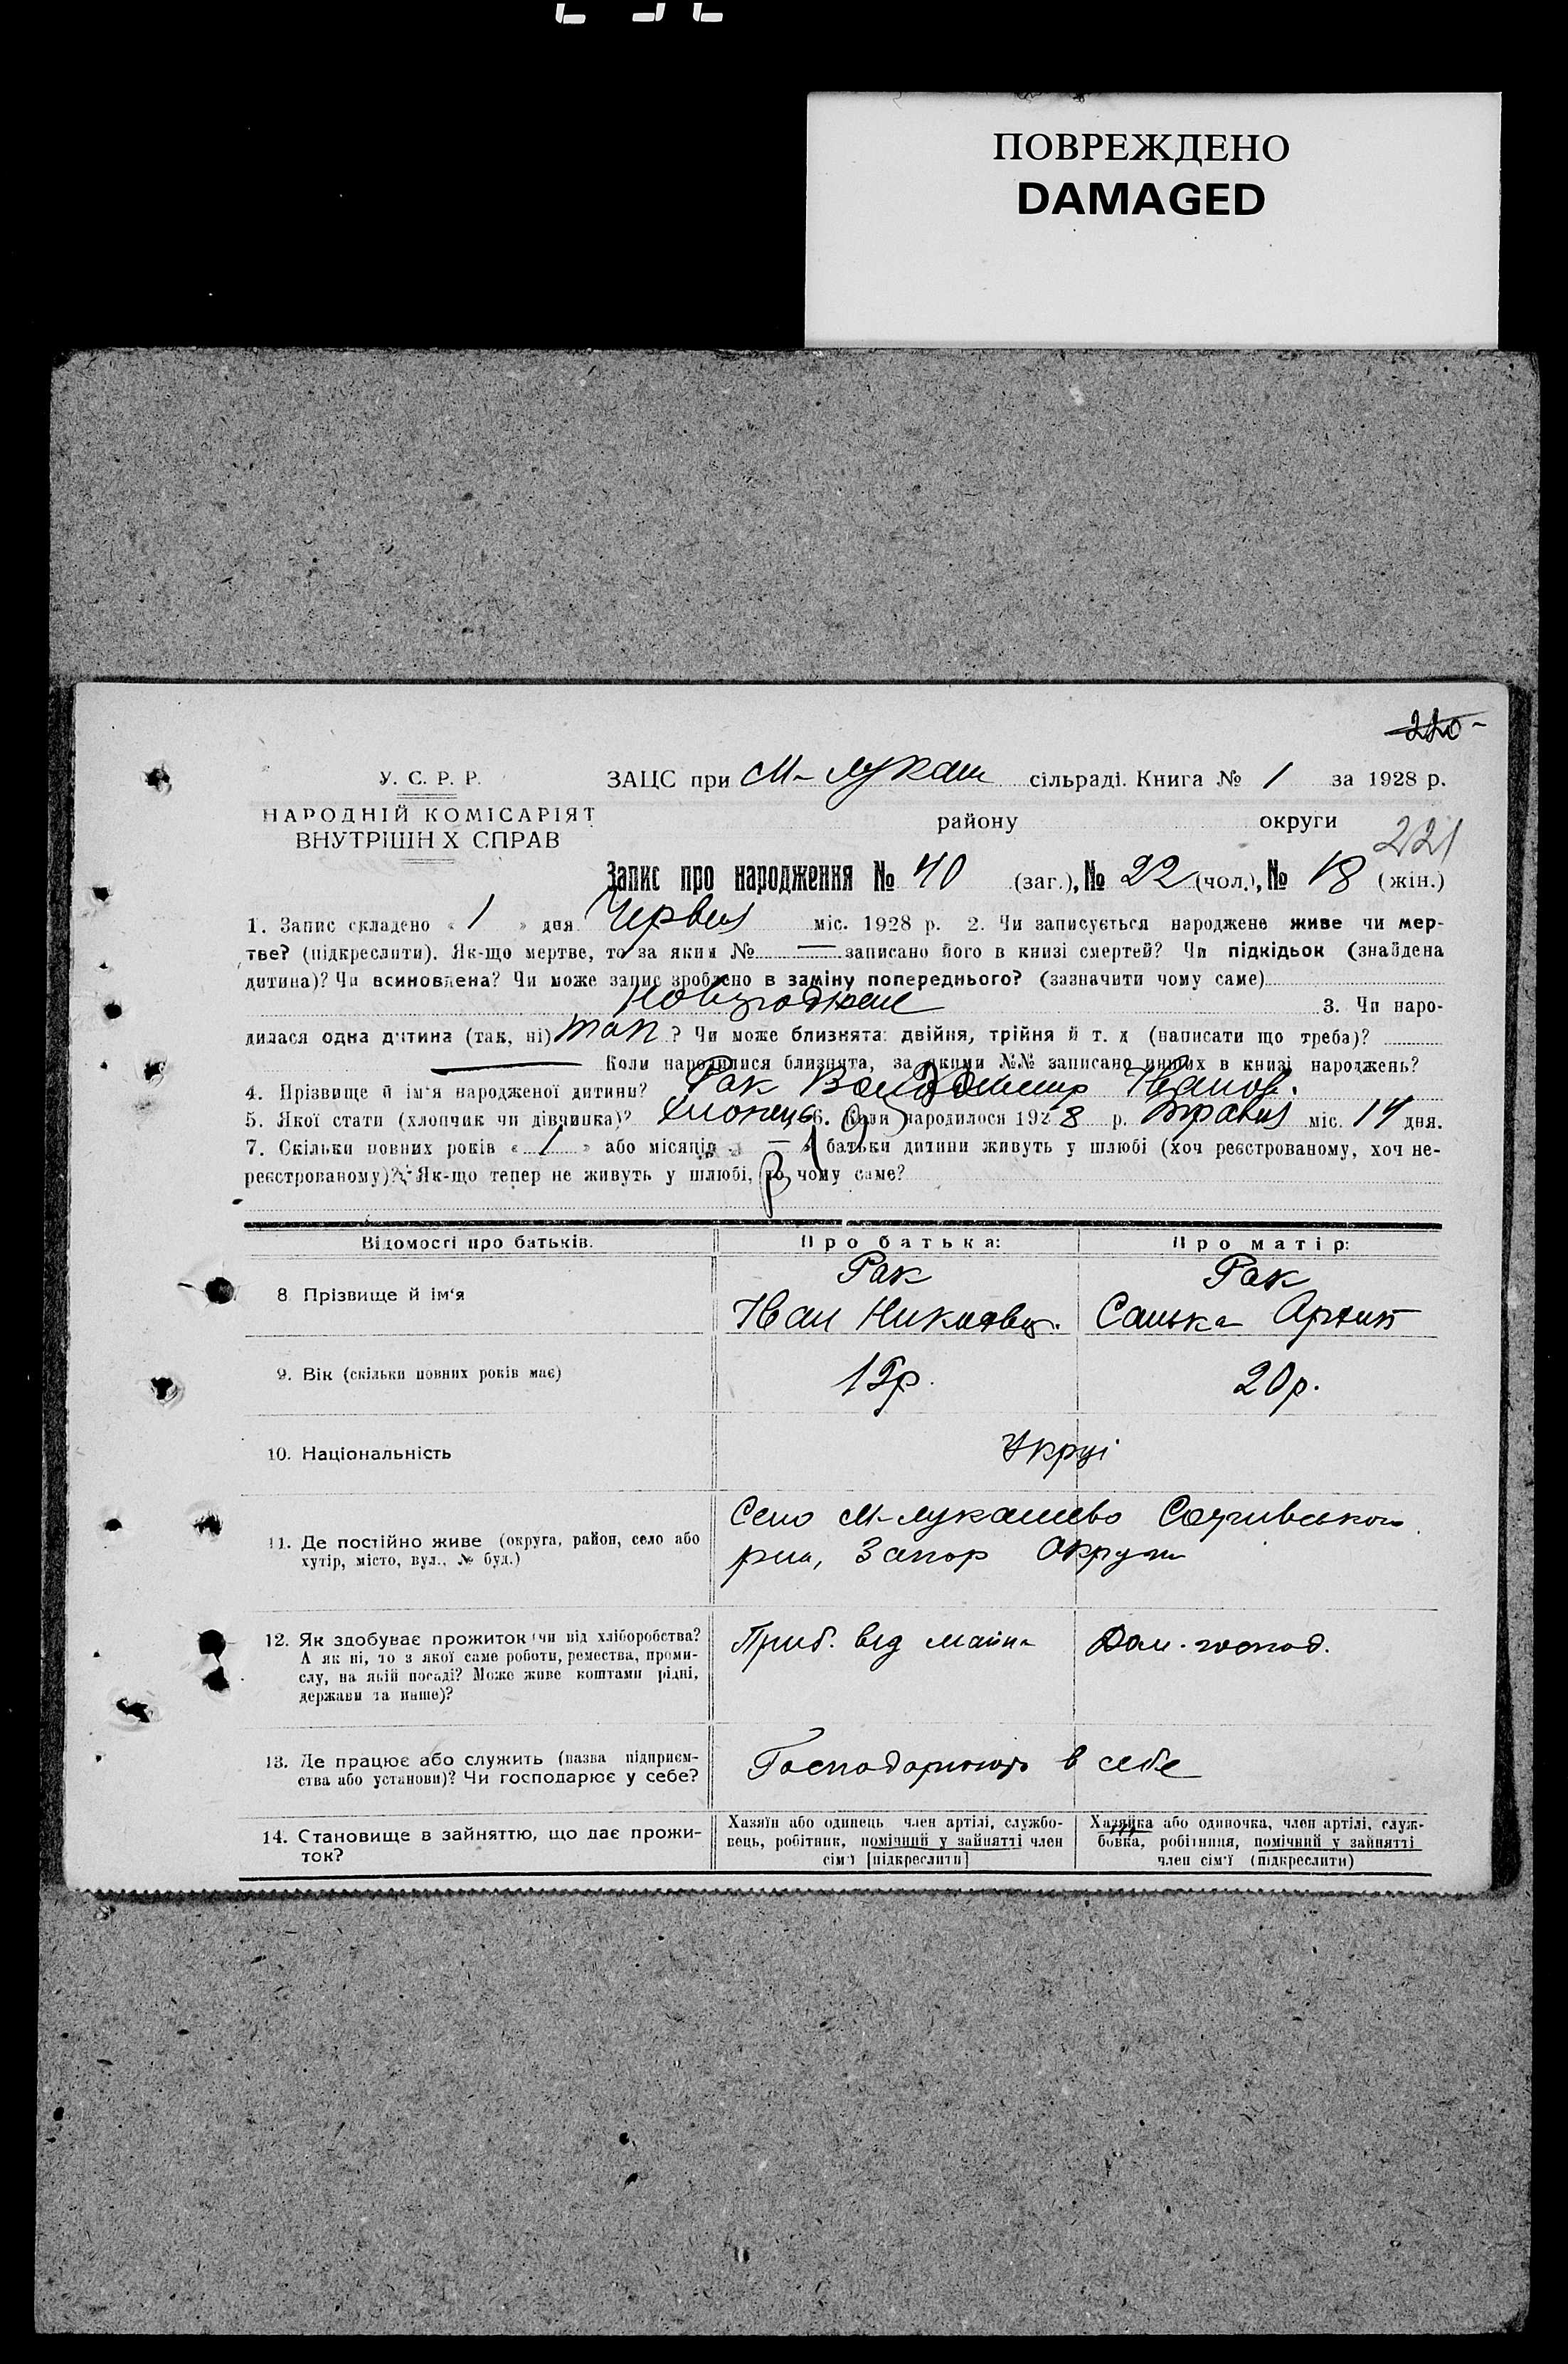 ПОВРЕЖДЕНО
DAMAGED
220-
У. С. Р. Р.
НАРОДНІЙ КОМІСАРІЯТ
ВНУТРІШН Х СПРАВ
ЗАЦС при М-лукаш сільраді. Книга № 1 за 1928 р.
району округи
221
Запис про народження № 40 (заг.), № 22 (чол.), № 18 (жін.)
1. Запис складено « 1 » дня Червня міс. 1928 р. 2. Чи записується народжене живе чи мер-
тве? (підкреслити). Як-що мертве, то за яким № — записано його в книзі смертей? Чи підкідьок (знайдена
дитина)? Чи всиновлена? Чи може запис зроблено в заміну попереднього? (зазначити чому саме)
3. Чи наро-
дилася одна дитина (так, ні) так ? Чи може близнята: двійня, трійня й т. д (написати що треба)?
— Коли народилися близнята, за якими №№ записано инших в книзі народжень?
4. Прізвище й ім'я народженої дитини? Рак Володимир Іванов.
5. Якої статі (хлопчик чи дівчинка)? Хлопець 6. Коли народилося 1928 р. Травня міс. 14 дня.
7. Скільки повних років « 1 » або місяців « — » батьки дитини живуть у шлюбі (хоч реєстрованому, хоч не-
реєстрованому)? Як-що тепер не живуть у шлюбі, то чому саме?
Відомості про батьків. Про батька: Про матір:
8 Прізвище й ім'я
Рак Рак
Іван Санька
9. Вік (скільки повних років має) 20р.
10. Національність Украї
11. Де постійно живе (округа, район, село або
хутір, місто, вул., № буд.)
Село М-лукашево
Запор Округи
12. Як здобуває прожиток (чи від хліборобства?
А як ні, то з якої саме роботи, ремества, проми-
слу, на якій посаді? Може живе коштами рідні,
держави та инше)?
Приб. від майна Дом. господ.
13. Де працює або служить (назва підприєм-
ства або установи)? Чи господарює у себе?
Господарюють в себе
14. Становище в зайняттю, що дає прожи-
ток?
Хазяїн або одинець член артілі, службо-
вець, робітник, помічний у зайнятті член
сім'ї [підкреслити]
Хазяйка або одиночка, член артілі, служ-
бовка, робітниця, помічний у зайнятті
член сім'ї (підкреслити)